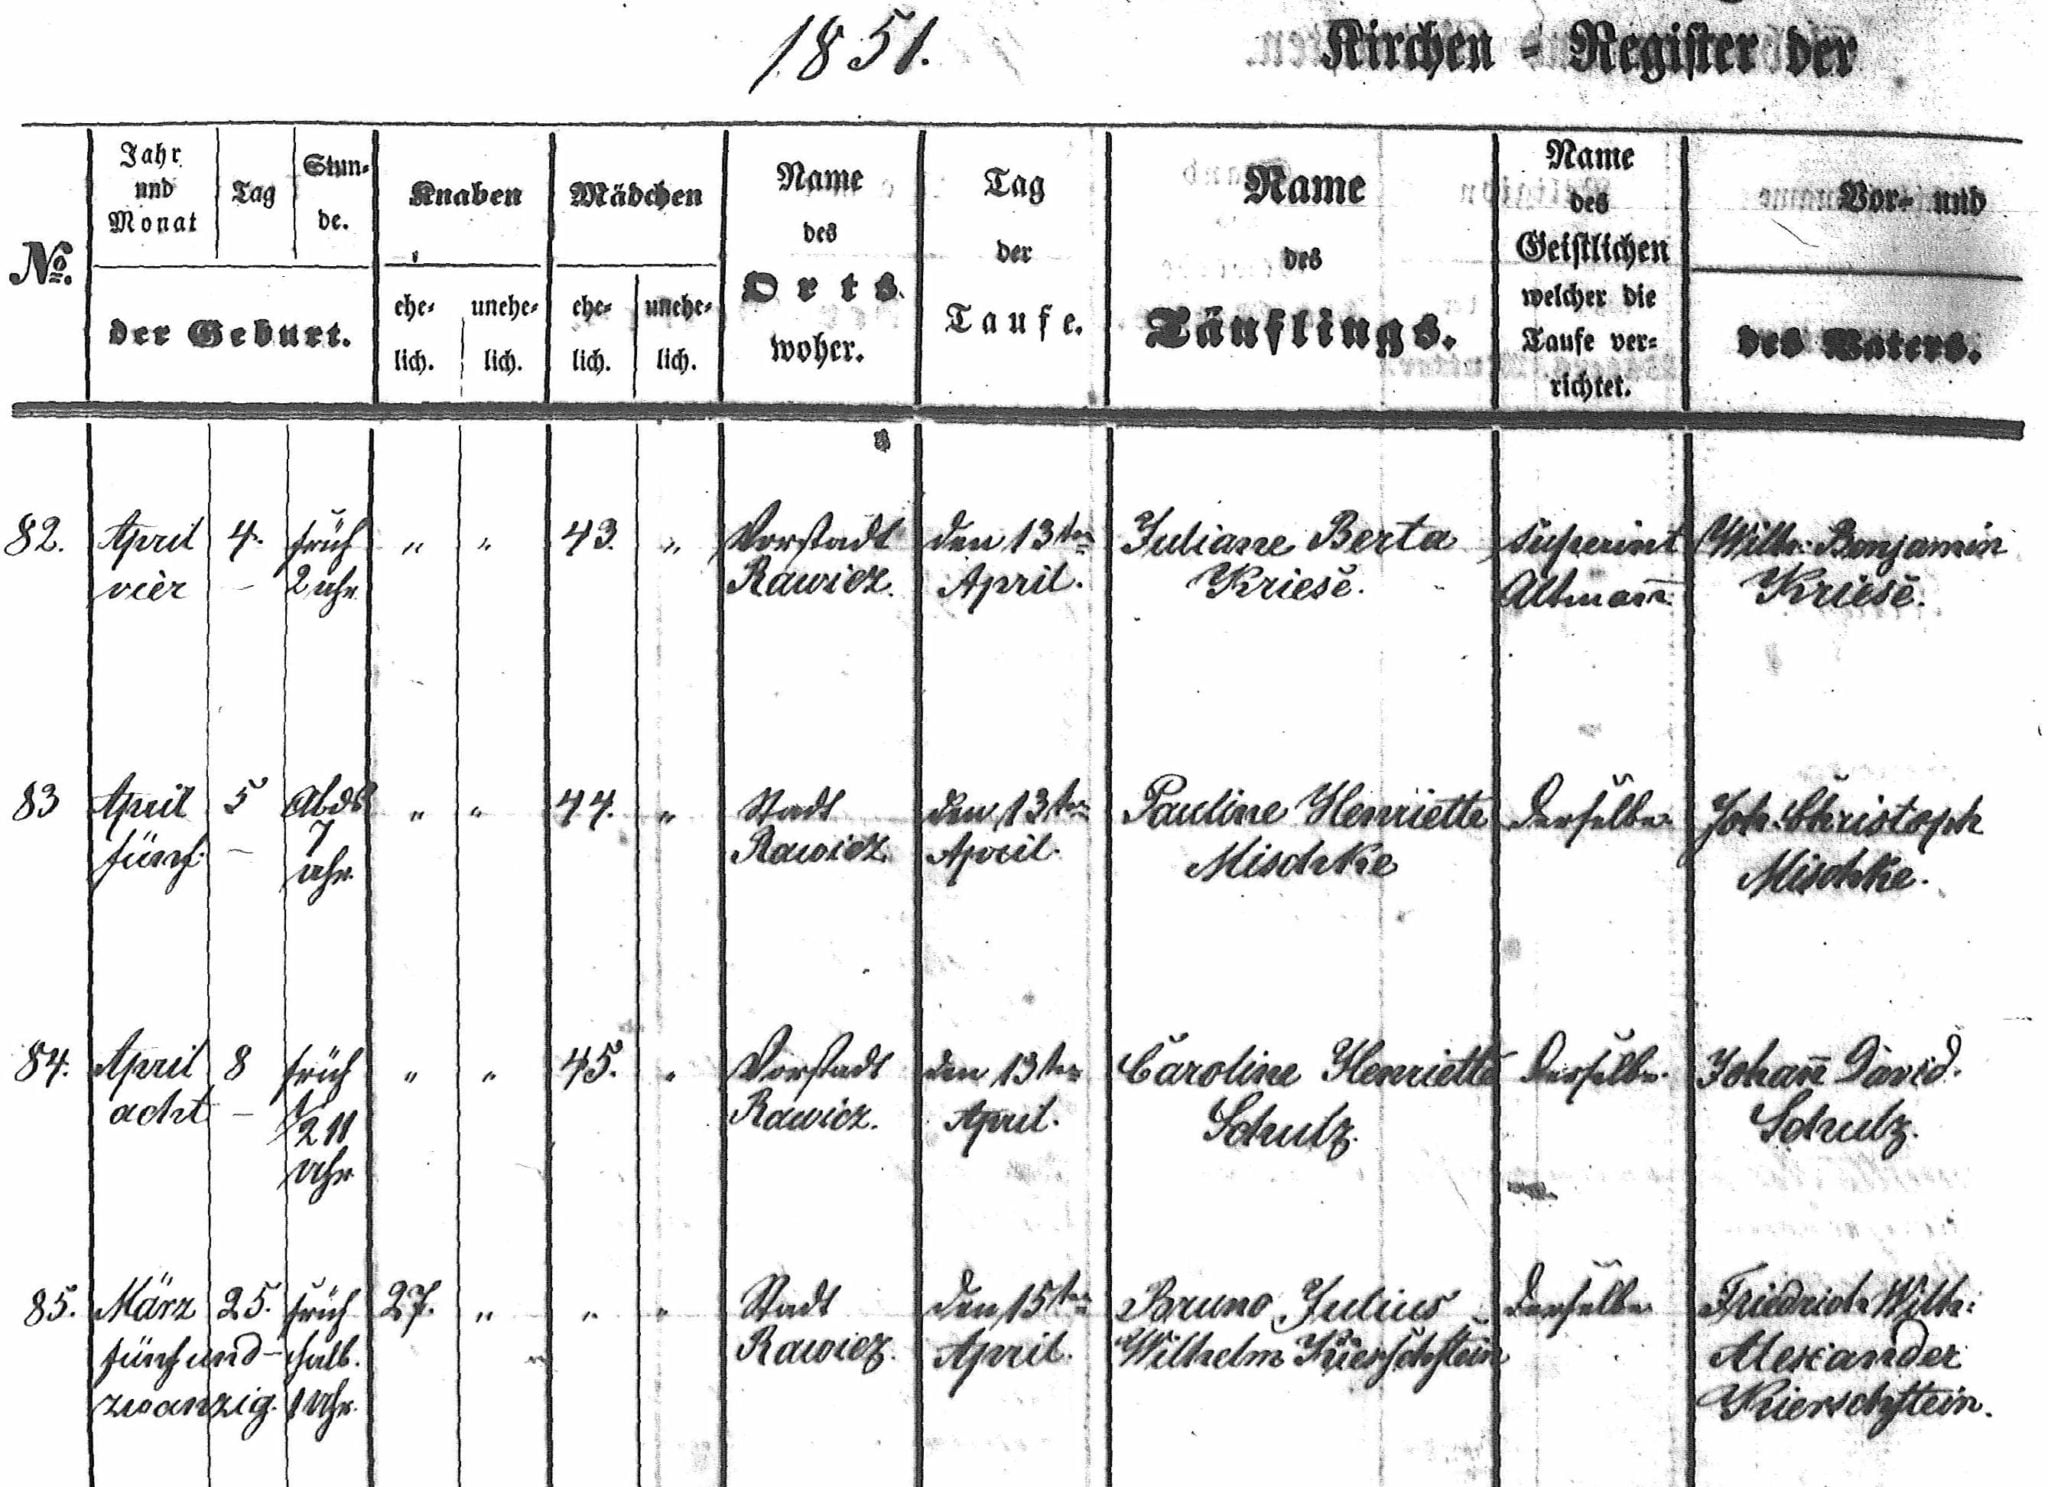 1851.
Kirchen-Register der
No.
Jahr und Monat
Tag
Stunde.
der Geburt.
Knaben
ehelich.
unehelich.
Mädchen
ehelich.
unehelich.
Name
des
Orts
woher.
Tag
der
Taufe.
Name
des
Täuflings.
Name
des
Geistlichen
welcher die
Taufe ver=
richtet.
Vor- und
des Vaters.
82. April 4. früh " " 43. " Vorstadt den 13ten Juliane Berta Superint Wilh: Benjamin
vier – 2 Uhr Rawicz. April. Kriese. Altmann. Kriese.
83 April 5 Abds " " 44. " Stadt den 13ten Pauline Henriette Derselbe. Joh. Christoph
fünf. – 7 Rawicz. April. Mischke Mischke.
Uhr.
84. April 8 früh " " 45. " Vorstadt den 13ten Caroline Henriette Derselbe. Johann David.
acht – 1/2 11 Rawicz. April. Schulz. Schulz.
Uhr
85. März 25. früh 27. " " " Stadt den 15ten Bruno Julius Derselbe Friedrich Wilh:
fünfund– halb. Rawicz. April. Wilhelm Kierschstein Alexander
zwanzig. 1 Uhr. Kierschstein.